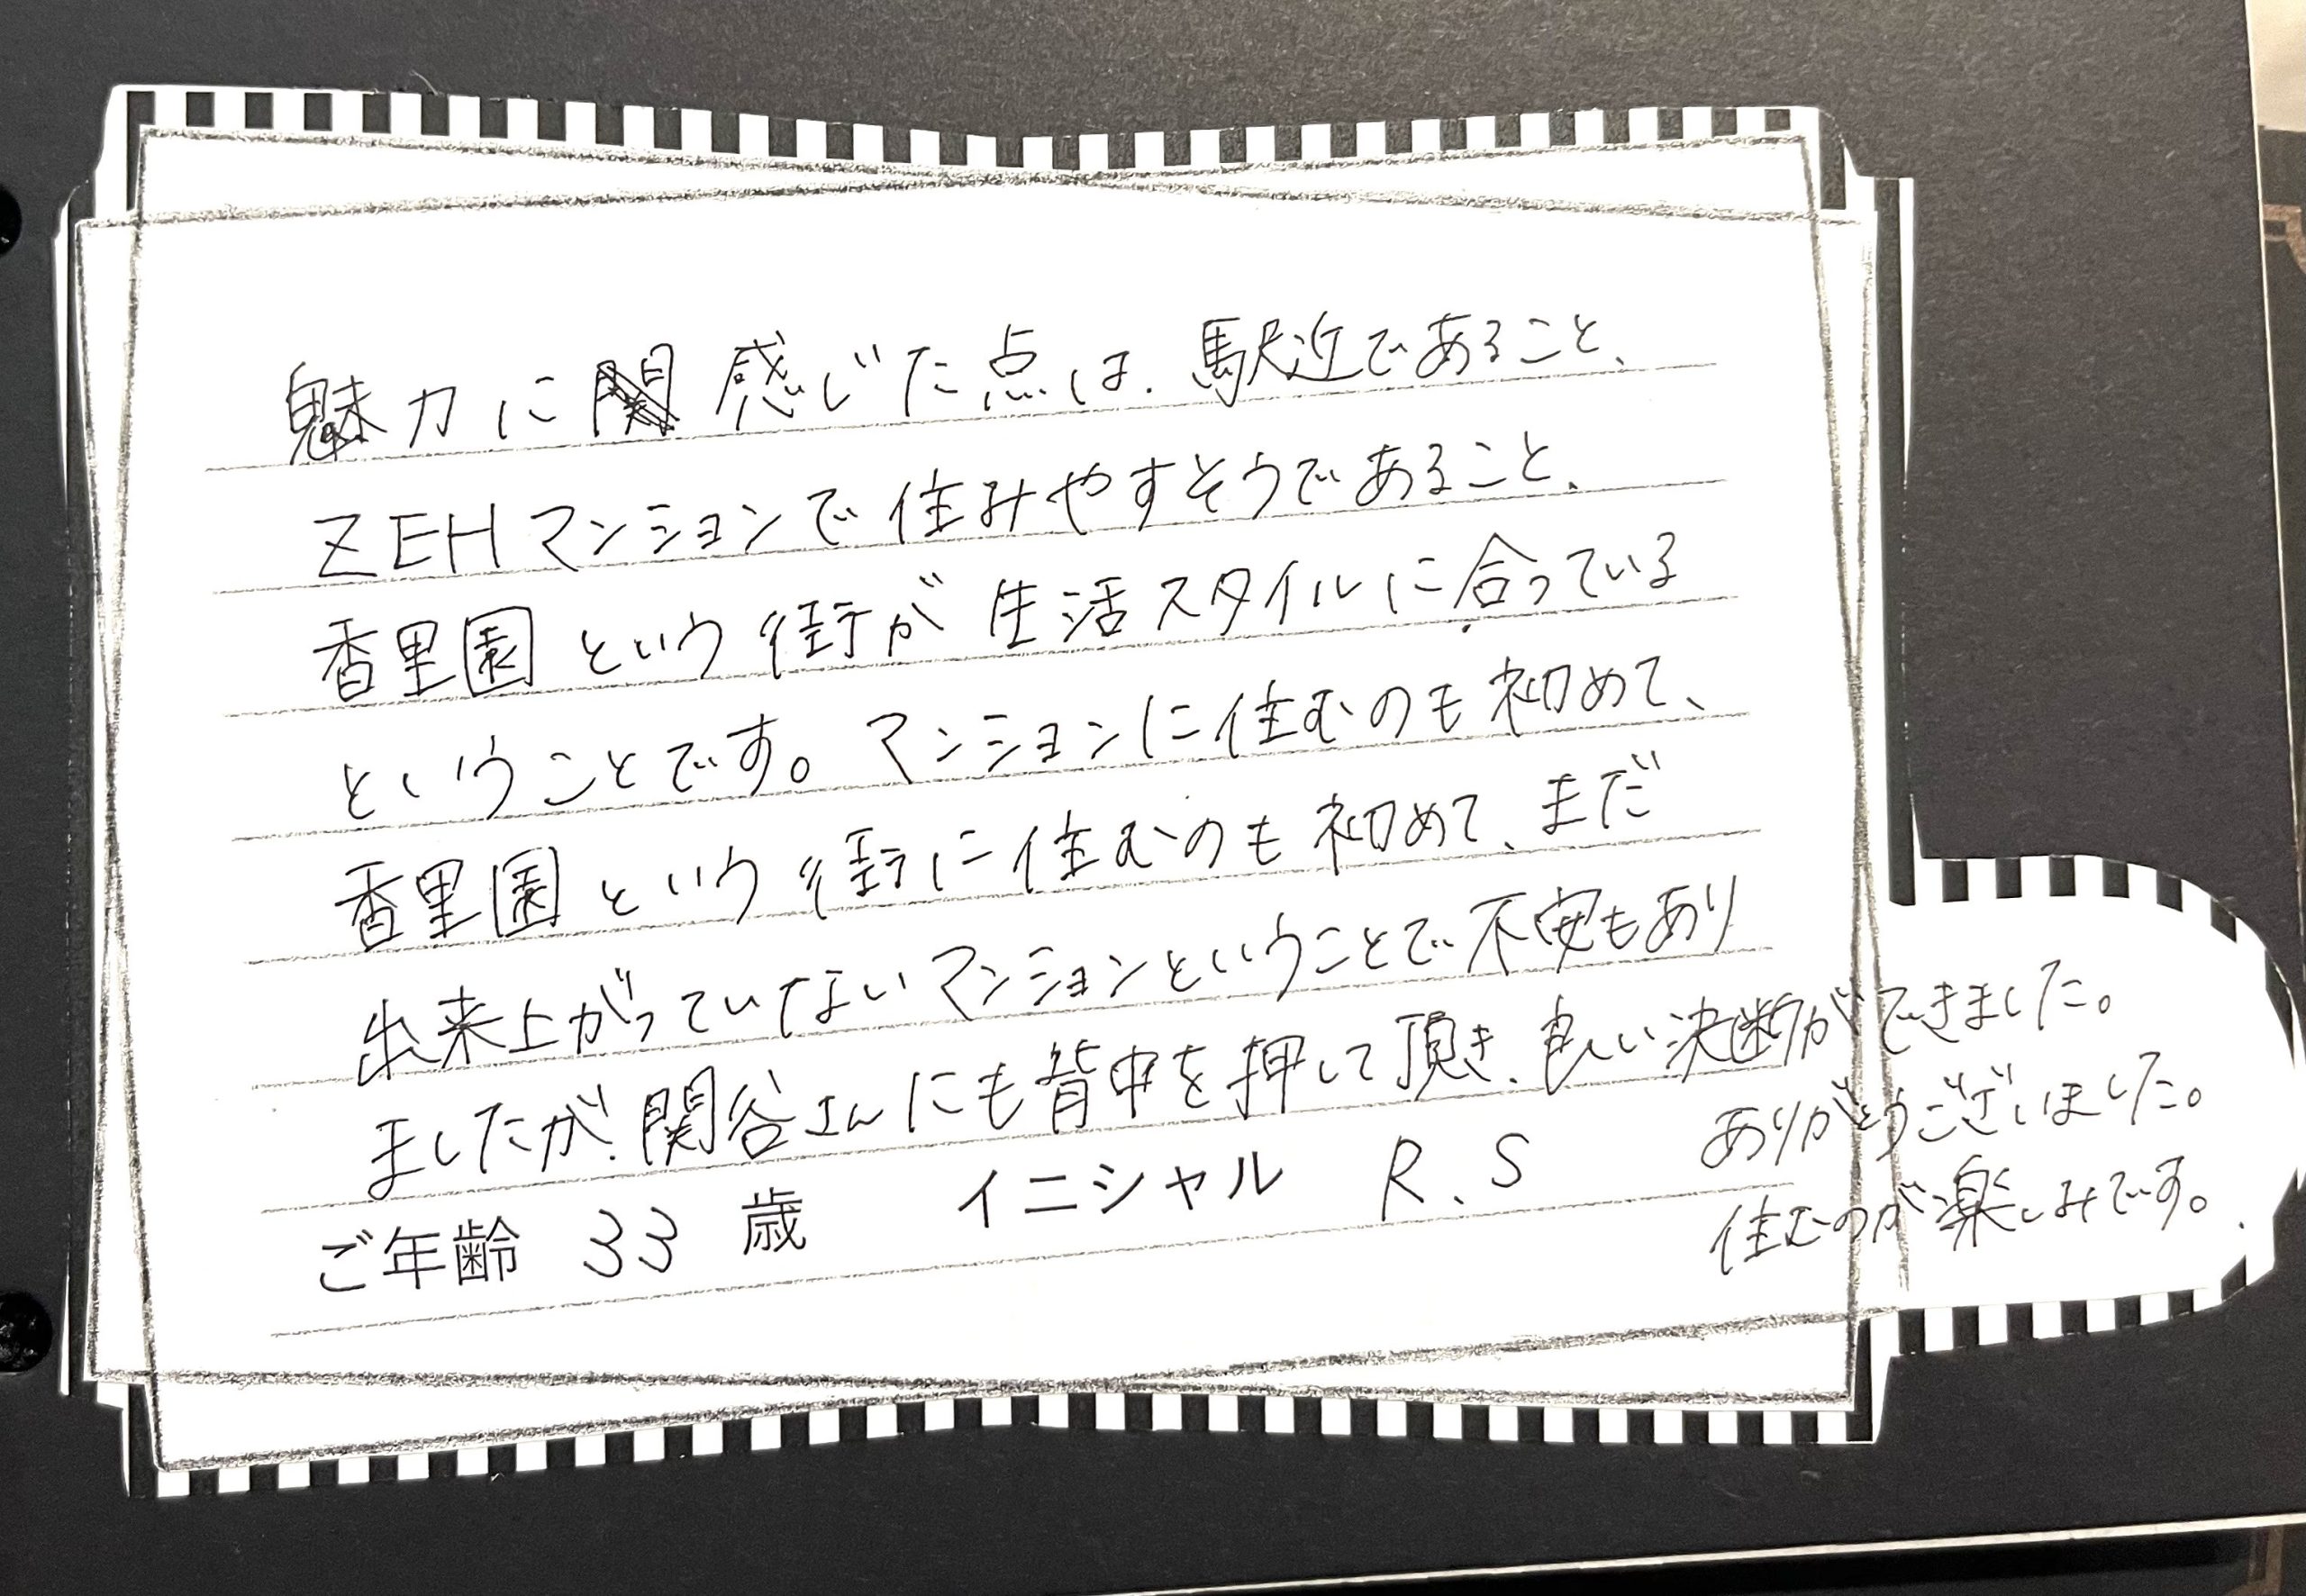 魅力に感じた点は、駅近であること、
ZEHマンションで住みやすそうであること、
香里園という街が生活スタイルに合っている
ということです。マンションに住むのも初めて、
香里園という街に住むのも初めて、まだ
出来上がっていないマンションということで不安もあり
ましたが、関谷さんにも背中を押して頂き、良い決断ができました。
ありがとうございました。
住むのが楽しみです。
ご年齢 33 歳 イニシャル R.S